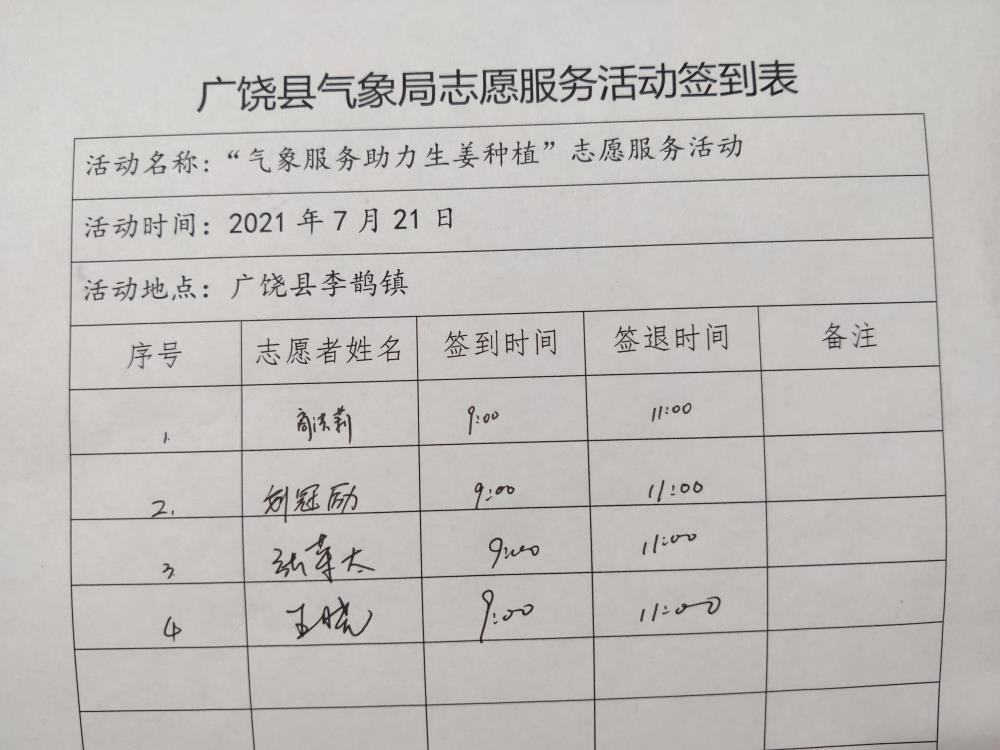 广饶县气象局志愿服务活动签到表
活动名称：“气象服务助力生姜种植”志愿服务活动
活动时间：2021 年 7 月 21 日
活动地点：广饶县李鹊镇
序号 志愿者姓名 签到时间 签退时间 备注
1. 商洪莉 9:00 11:00
2. 刘冠励 9:00 11:00
3 9:00 11:00
4 王晓 9:00 11:00